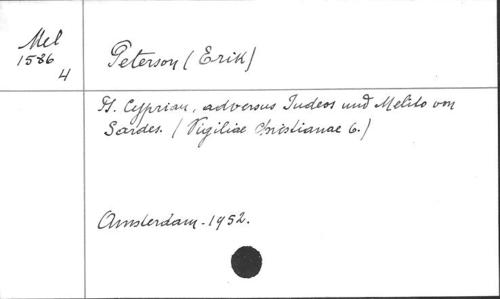 Mel
1586
4
Peterson (Erik)
Ps. Cyprian, adversus Judeos und Melito von
Sardes. (Vigiliae Christianae 6.)
Amsterdam - 1952.